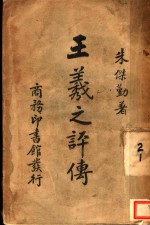 朱傑勤著
王羲之評傳
商務印書館發行
21